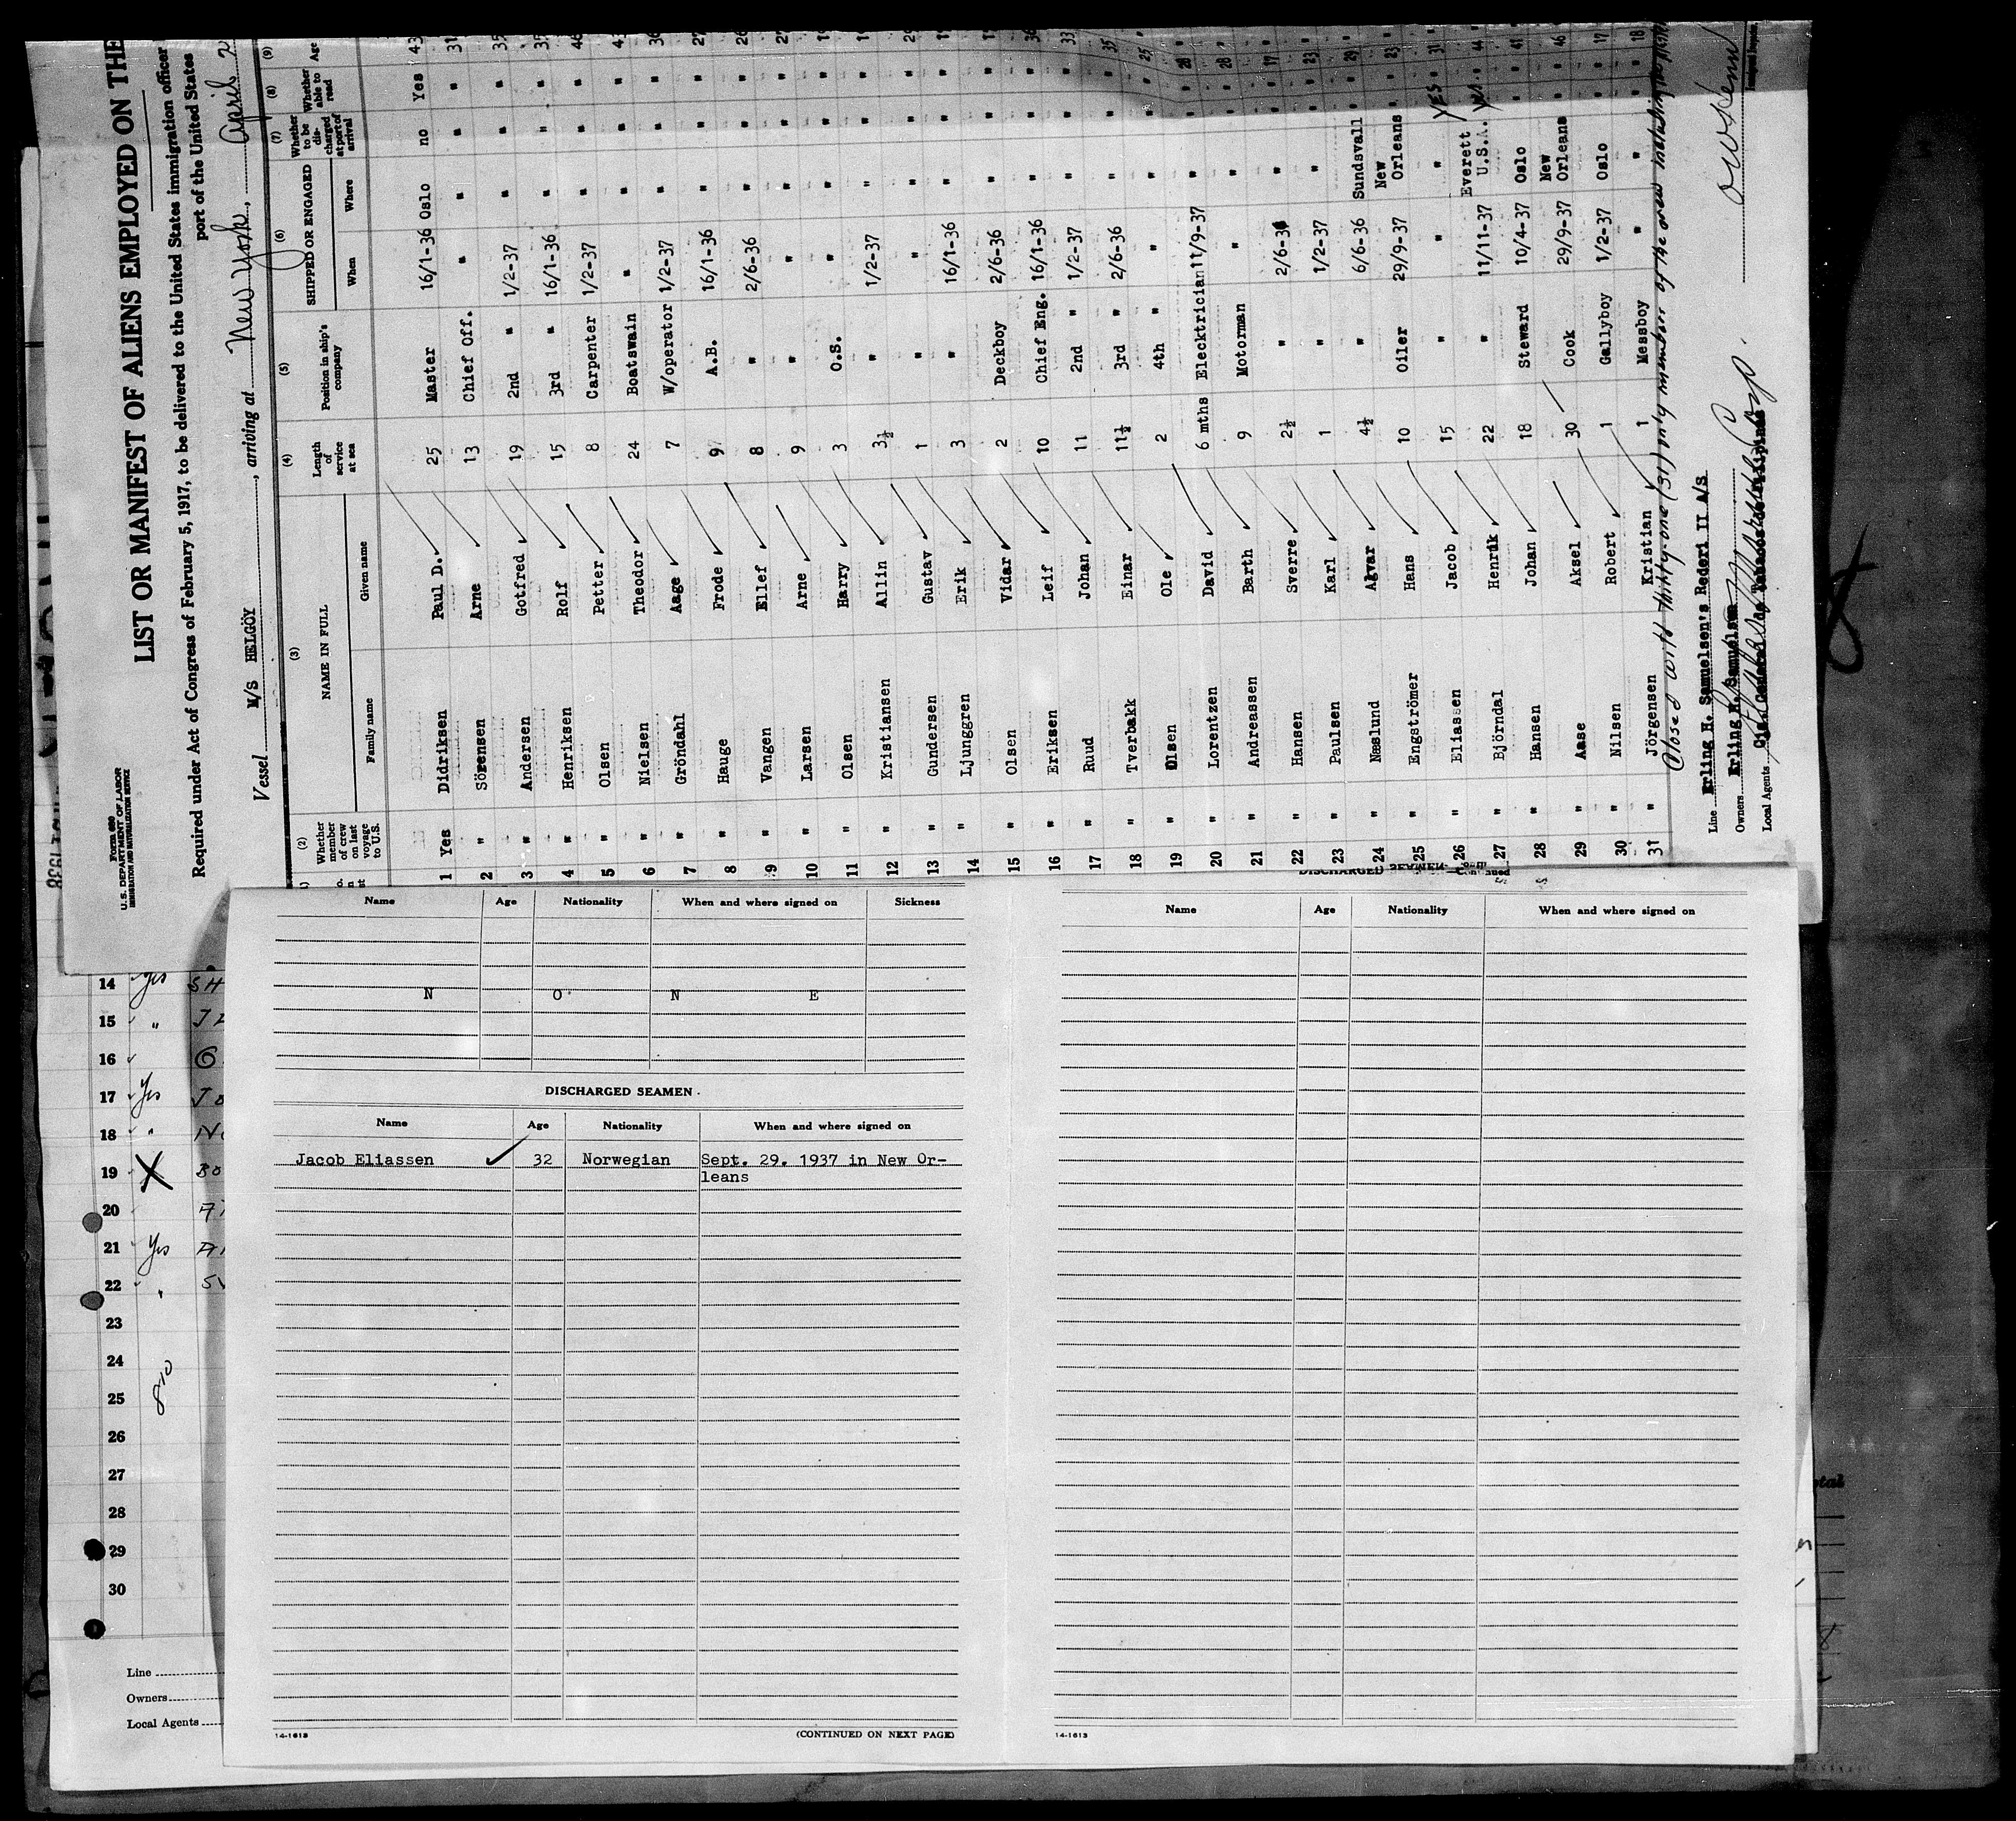 Form 680
U. S. DEPARTMENT OF LABOR
IMMIGRATION AND NATURALIZATION SERVICE
LIST OR MANIFEST OF ALIENS EMPLOYED ON THE
Required under Act of Congress of February 5, 1917, to be delivered to the United States immigration officer
port of the United States
Vessel M/S HELGÖY , arriving at New York, April 2
(2) (3) (4) (5) (6) (7) (8) (9)
Whether member of crew on last voyage to U.S. NAME IN FULL Length of service at sea Position in ship's company SHIPPED OR ENGAGED Whether to be discharged at port of arrival Whether able to read Age
Family name Given name When Where
1 Yes Didriksen Paul D. 25 Master 16/1-36 Oslo no Yes 43
2 " Sörensen Arne 13 Chief Off. " " " " 31
3 " Andersen Gotfred 19 2nd " 1/2-37 " " " 35
4 " Henriksen Rolf 15 3rd " 16/1-36 " " "
5 " Olsen Petter 8 Carpenter 1/2-37 " " "
6 " Nielsen Theodor 24 Boatswain " " " "
7 " Gröndahl Aage 7 W/operator 1/2-37 " " "
8 " Hauge Frode 9 A.B. 16/1-36 " " " 27
9 " Vangen Ellef 8 " 2/6-36 " " "
10 " Larsen Arne 9 " " " " "
11 " Olsen Harry 3 O.S. " " " "
12 " Kristiansen Allin 3½ " 1/2-37 " " "
13 " Gundersen Gustav 1 " " " " "
14 " Ljunggren Erik 3 " 16/1-36 " " "
15 " Olsen Vidar 2 Deckboy 2/6-36 " " "
16 " Eriksen Leif 10 Chief Eng. 16/1-36 " " "
17 " Ruud Johan 11 2nd " 1/2-37 " " " 33
18 " Tverbakk Einar 11½ 3rd " 2/6-36 " " " 35
19 " Olsen Ole 2 4th " " " " " 25
20 " Lorentzen David 6 mths Elecktrician 11/9-37 " " "
21 " Andreassen Barth 9 Motorman " " " " 28
22 " Hansen Sverre 2½ " 2/6-3 " " " 17
23 " Paulsen Karl 1 " 1/2-37 " " " 23
24 " Næslund Alvar 4½ " 6/6-36 Sundsvall " " 29
25 " Engströmer Hans 10 Oiler 29/9-37 New Orleans " " 23
26 " Eliassen Jacob 15 " " " YES " 31
27 " Björndal Henrik 22 " 11/11-37 Everett U.S.A. yes " 44
28 " Hansen Johan 18 Steward 10/4-37 Oslo " " 41
29 " Aase Aksel 30 Cook 29/9-37 New Orleans " " 46
30 " Nilsen Robert 1 Gallyboy 1/2-37 Oslo " " 17
31 " Jörgensen Kristian 1 Messboy " " " " 18
Closed with thirty-one (31) only members of the crew including the
Line Erling H. Samuelsen's Rederi II A/S
Owners Erling H. Samuelsen
Local Agents Cia. General de Tabacos de Filipinas
14 Yes
15 "
16
17 Yes
18 "
19 X
20
21 Yes
22 "
23
24
25
26
27
28
29
30
Line
Owners
Local Agents
Name Age Nationality When and where signed on Sickness
N O N E
DISCHARGED SEAMEN
Name Age Nationality When and where signed on
Jacob Eliassen 32 Norwegian Sept. 29. 1937 in New Or-
leans
14-1613 (CONTINUED ON NEXT PAGE)
DISCHARGED SEAMEN—Continued
Name Age Nationality When and where signed on
14-1613